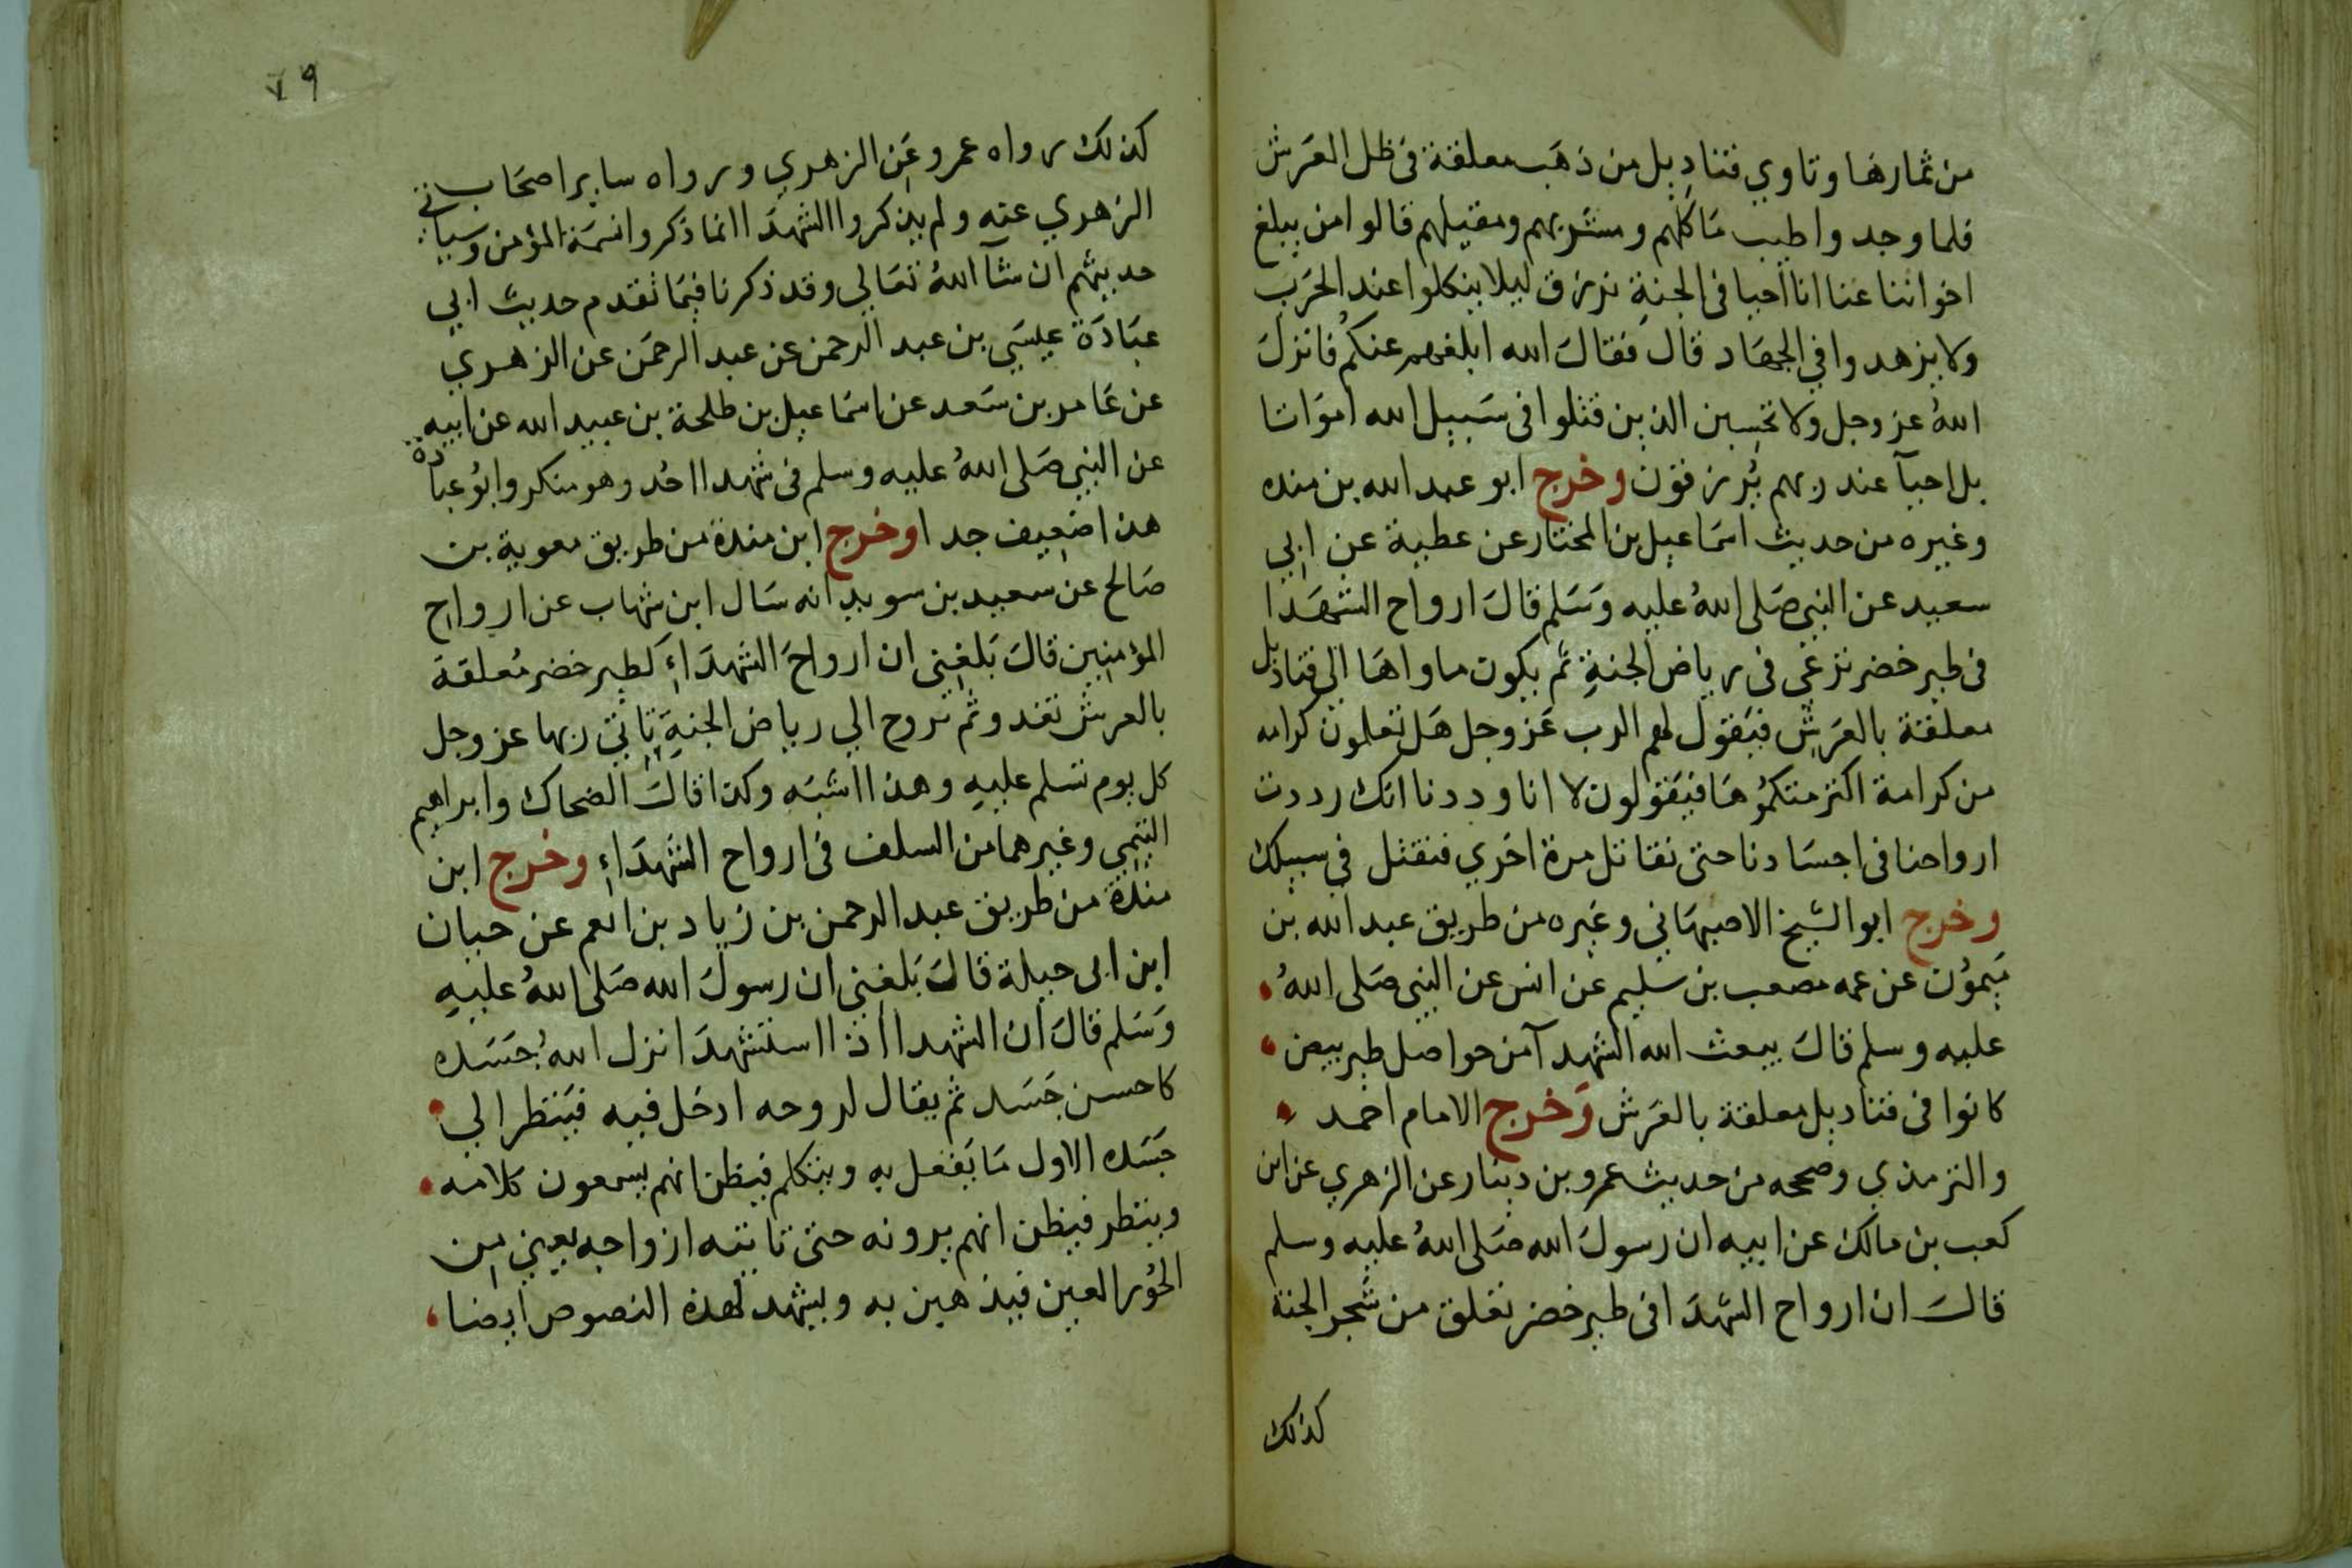 من ثمارها وتاوي قناديل من ذهب معلقة فى ظل العرش
فلما وجدوا طيب مَاكلهم ومشربهم ومقيلهم قالوا من يبلغ
اخواننا عنا انا احيا فى الجنةِ نرزق ليلا ينكلوا عند الحَرب
ولا يزهدوا في الجهاد قال فقالَ الله ابلغهم عنكم فانزلَ
اللهُ عز وجل ولا تحسبن الذين قتلوا فى سَبيل الله اموَاتا
بل احيآ عند ربهم يُرزقوُن وخرج ابو عبد الله بن منده
وغيره من حديث اسمَاعيل بن المختار عن عطية عن ابي
سعيد عن النبي صَلى اللهُ عليه وَسَلم قالَ ارواح الشهَدا
فى طير خضر ترعَي فى رياض الجنةِ ثم يكون ماواهَا الي قناديل
معلقة بالعَرشِ فيَقول لهم الرب عَز وجل هَل تعلمون كرامه
من كرامة اكثر متكمُوهَا فيَقولون لا انا وددنا انك رددت
ارواحنا فى اجسَادنا حتى نقاتل مرة اخري فنقتل في سبيلك
وخرج ابو الشيخ الاصبهَاني وغيره من طريق عبد الله بن
مَيموُن عن عمه مصعب بن سليم عن انس عن النبى صَلى اللهُ
عليه وسلم قالَ يبعث الله الشهدآ من حواصل طير بيض
كانوا فى قناديل معلقة بالعَرش وَخرج الامام احمد
والترمذي وصححه من حديث عمرو بن دينار عن الزهري عن ابن
كعب بن مالك عن ابيه ان رسولَ الله صَلى اللهُ عليه وسلم
قالَ ان ارواح الشهدَا فى طير خضر تعلق من شجر الجنة
كذلك
٧٩
كذلك رواه عمرو عَن الزهري ورواه ساير اصحَاب
الزهري عنه ولم يذكروا الشهدَا انما ذكروا نسمَة المؤمن وسياتي
حديثهم ان شآ اللهُ تعَالي وقد ذكرنا فيمَا تقدم حديث ابي
عبَادَة عيسَي بن عبد الرحمن عن عبد الرحمَن عن الزهري
عن عَامر بن سَعد عن اسمَاعيل بن طلحة بن عبيد الله عن ابيه
عن النبي صَلى اللهُ عليه وسلم فى شهدا احُد وهو منكر وابوُ عبادة
هذا ضعيف جدا وخرج ابن مندة من طريق معوية بن
صَالح عن سعيد بن سويد انه سَال ابن شهاب عن ارواح
المؤمنين قالَ بَلغنى ان ارواحَ الشهدَاءِ كطير خضر مُعلقة
بالعرش تغدو ثم تروح الي رياض الجنةِ تاتي ربها عز وجل
كل يوم تسلم عليهِ وهذا اشبَه وكذا قالَ الضحاك وابراهيم
التيمِي وغيرهما من السلف فى ارواح الشهدَاءِ وخرج ابن
مندة من طريق عبد الرحمن بن زياد بن انعم عن حبان
ابن ابى جبلة قالَ بَلغنى ان رسولَ الله صَلى اللهُ عليهِ
وَسَلم قالَ ان الشهدا اذا استشهدَ انزل اللهُ جَسَده
كاحسن جَسَد ثم يقال لروحه ادخل فيه فيَنظر الي
جَسَده الاول مَا يَفعل بهِ ويتكلم فيظن انهم يسمعون كلامه
وينظر فيظن انهم يرونه حتى تاتيَه ازواجه يعيني من
الحوُر العين فيذهبن به ويشهد لهذه النصوص ايضا